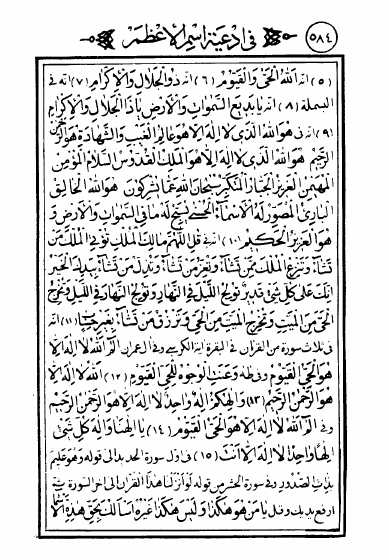 ٥٨٤ في ادعية اسم الاعظم
(٥) انه الله الحي والقيوم (٦) انه ذو الجلال والاكرام (٧) انه في
البسملة (٨) انه يا بديع السموات والارض يا ذا الجلال والاكرام
(٩) انه في هو الله الذي لا اله الا هو عالم الغيب والشهادة هو الرحمن
الرحيم هو الله الذي لا اله الا هو الملك القدوس السلام المؤمن
المهيمن العزيز الجبار المتكبر سبحان الله عما يشركون هو الله الخالق
البارئ المصور له الاسماء الحسنى يسبح له ما في السموات والارض و
هو العزيز الحكيم (١٠) انه في قل اللهم مالك الملك تؤتي الملك من
تشاء وتنزع الملك ممن تشاء وتعز من تشاء وتذل من تشاء بيدك الخير
انك على كل شئ قدير تولج الليل في النهار وتولج النهار في الليل وتخرج
الحي من الميت وتخرج الميت من الحي وترزق من تشاء بغير حساب (١١) انه
في ثلاث سورة من القران في البقرة اية الكرسي وفي ال عمران الم الله لا اله الا
هو الحي القيوم وفي طه وعنت الوجوه للحي القيوم (١٢) الله لا اله الا
هو الرحمن الرحيم (١٣) والهكم اله واحد لا اله الا هو الرحمن الرحيم
وفي الم الله لا اله الا هو الحي القيوم (١٤) يا الهنا واله كل شئ
الها واحدا لا اله الا انت (١٥) في اول سورة الحديد الى قوله وهو عليم
بذات الصدور وفي سورة الحشر من قوله لو انزلنا هذا القران الى اخر السورة ثم
ارفع يديك وقل يا من هو هكذا وليس هكذا غيره اسألك بحق هذه الاسماء